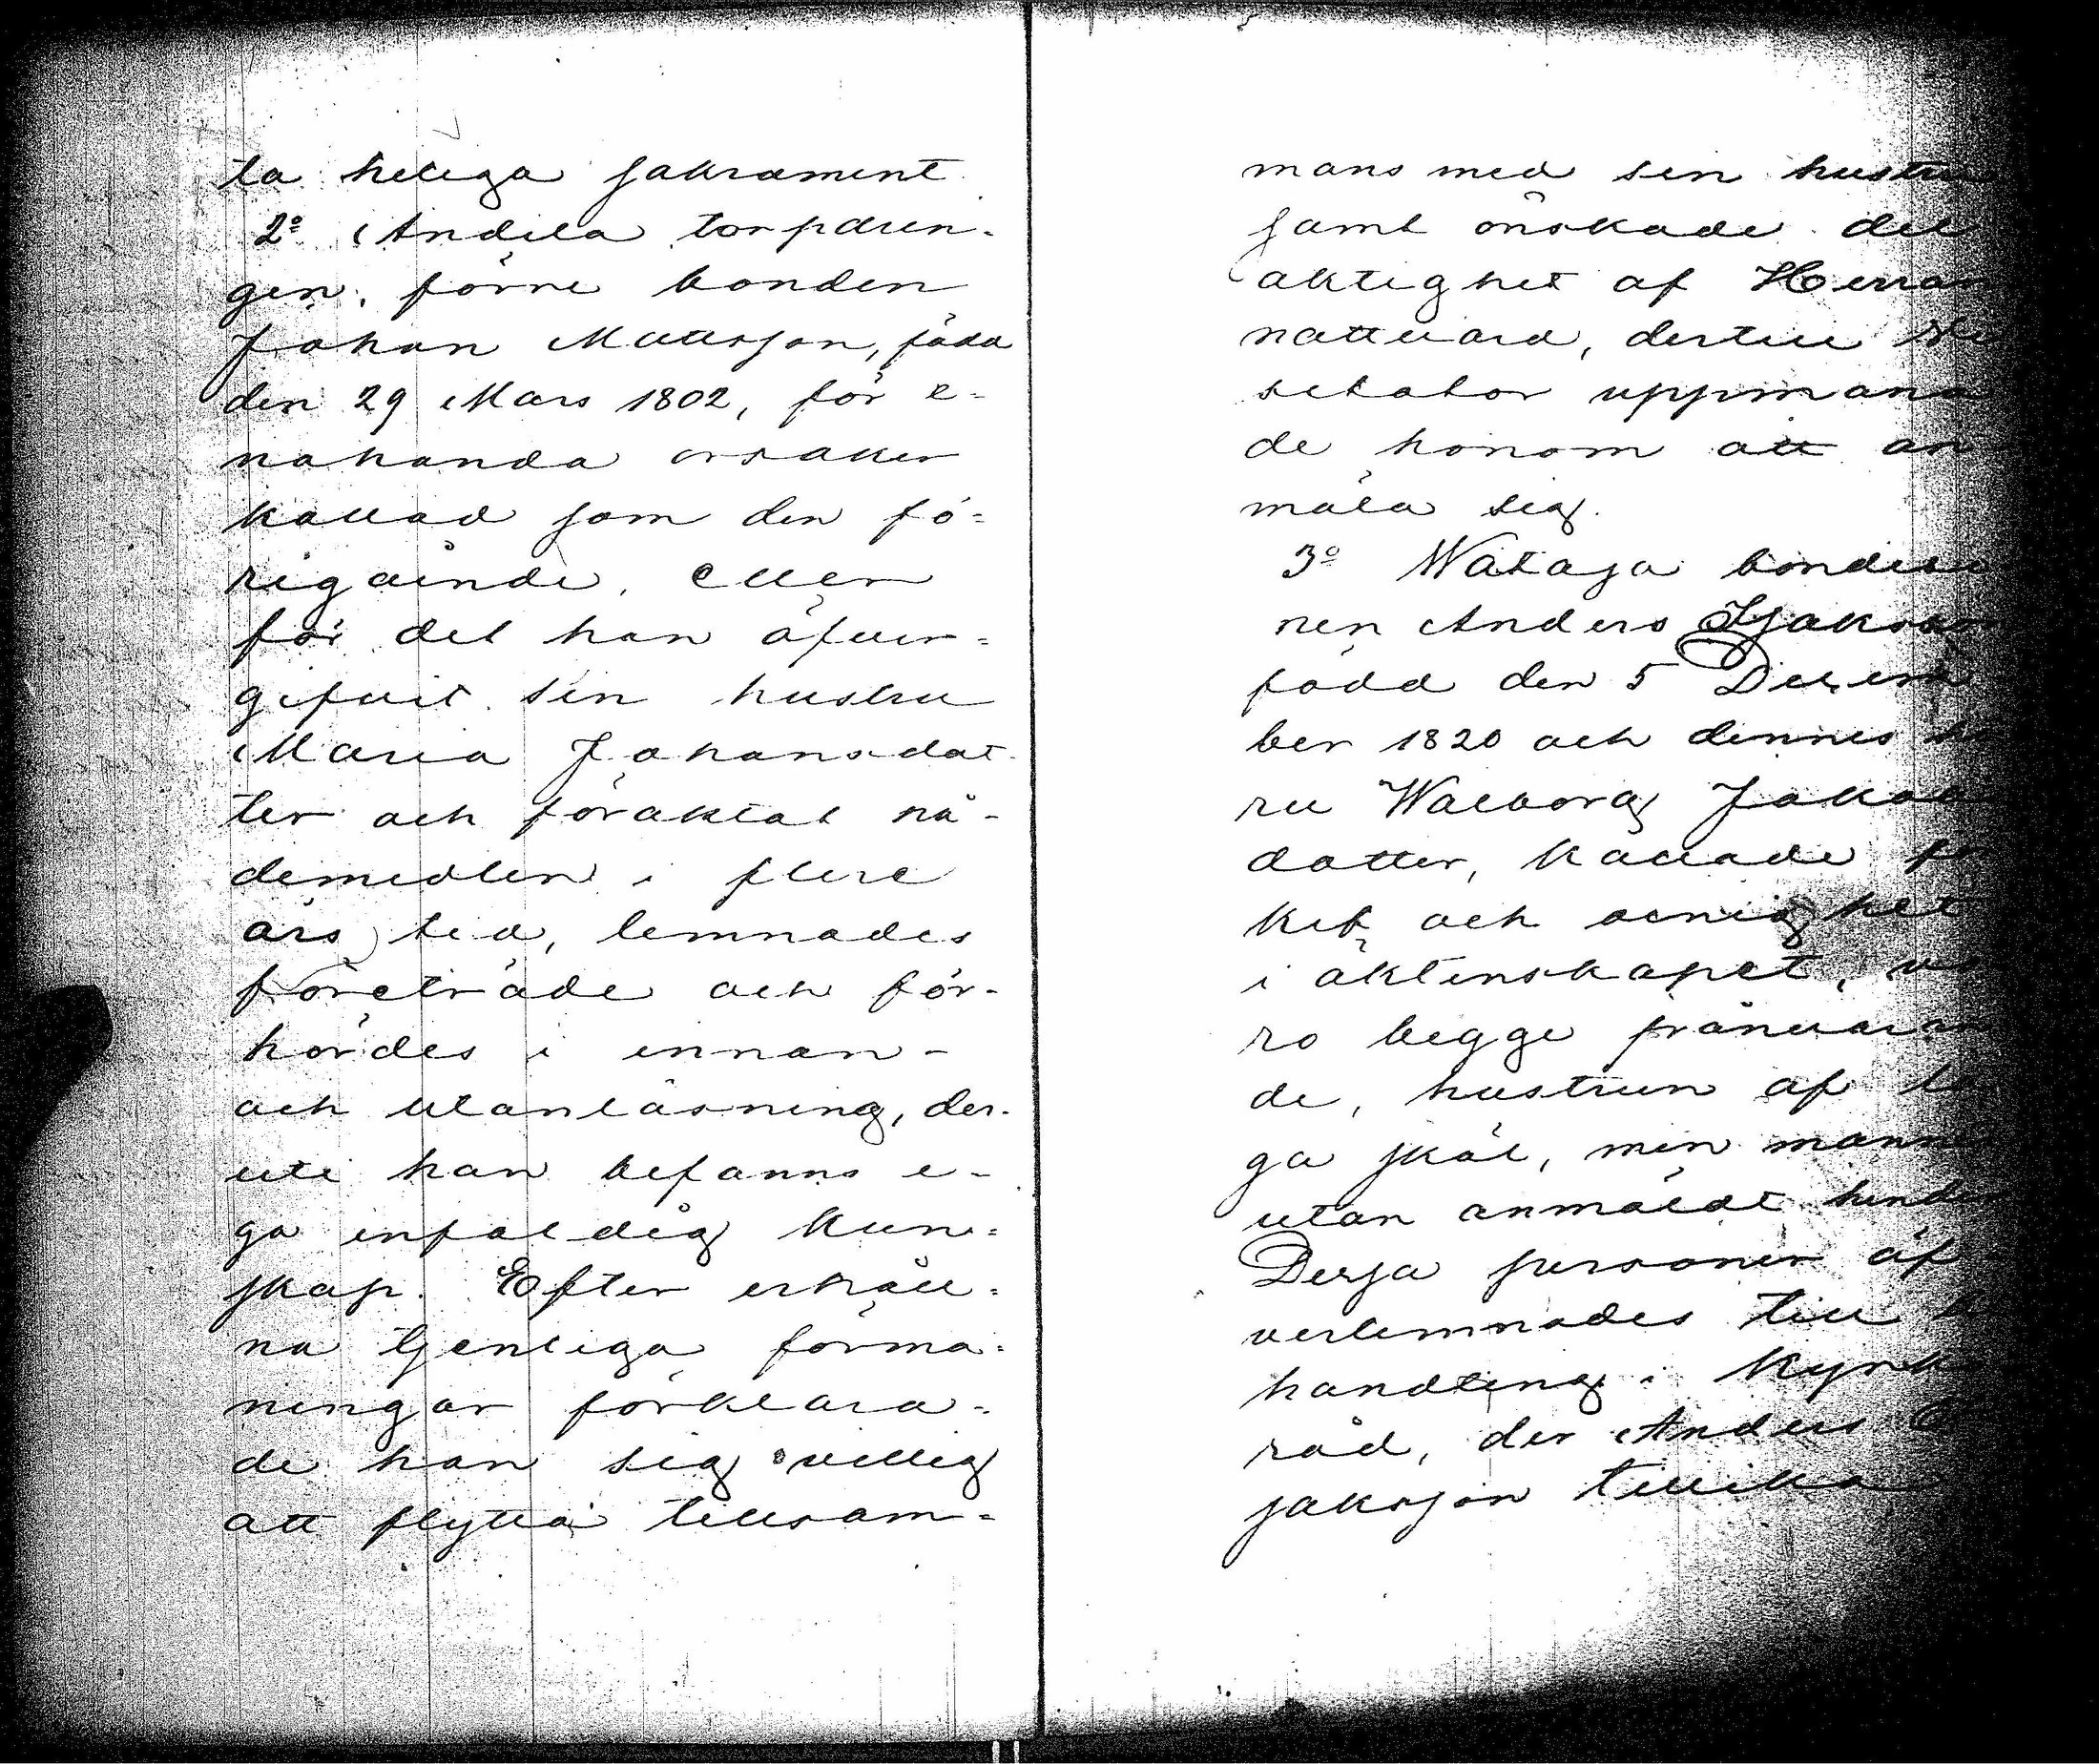 ta heliga sakrament.
2º Andila torpdren-
gen, förre bonden
Johan Mattsson, född
den 29 Mars 1802, för e-
nahanda orsaker
kallad som den fö-
rigående, eller
för det han öfver-
gifvit sin hustru
Maria Johansdot-
ter och föraktat nå-
demedlen i flere
års tid, lemnades
företräde och för-
hördes i innan-
och utanläsning, der-
uti han befanns e-
ga enfaldig kun-
skap. Efter erhåll-
na tjenliga förma-
ningar förklara-
de han sig villig
att flytta tillsam-
mans med sin hustru
samt önskade del
aktighet af Herran
nattvard, dertill
uppmana
de honom att an
mäla sig.
3º Wataja bondeso
nen Anders Isaksson
född den 5 Decem
ber 1820 och dennes
ru Walborg Jakobs
dotter, kallade för
kif och oenighet
i äktenskapet, vo
ro begge frånvaran
de, hustrun af la
ga skäl, men mannen
utan anmäldt hinder
Dessa personer öf
verlemnades till
handling i Kyrk
råd, der Anders I
saksson tillika